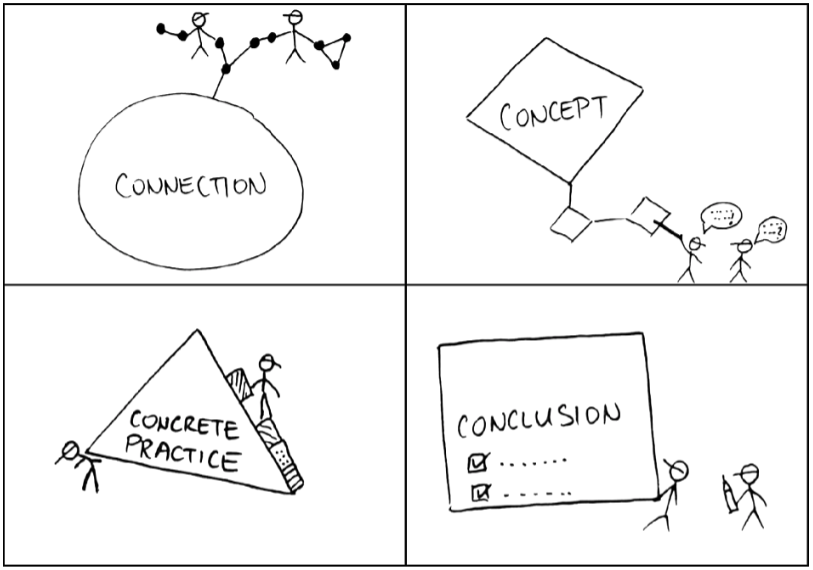 CONNECTION
CONCEPT
CONCRETE
PRACTICE
CONCLUSION